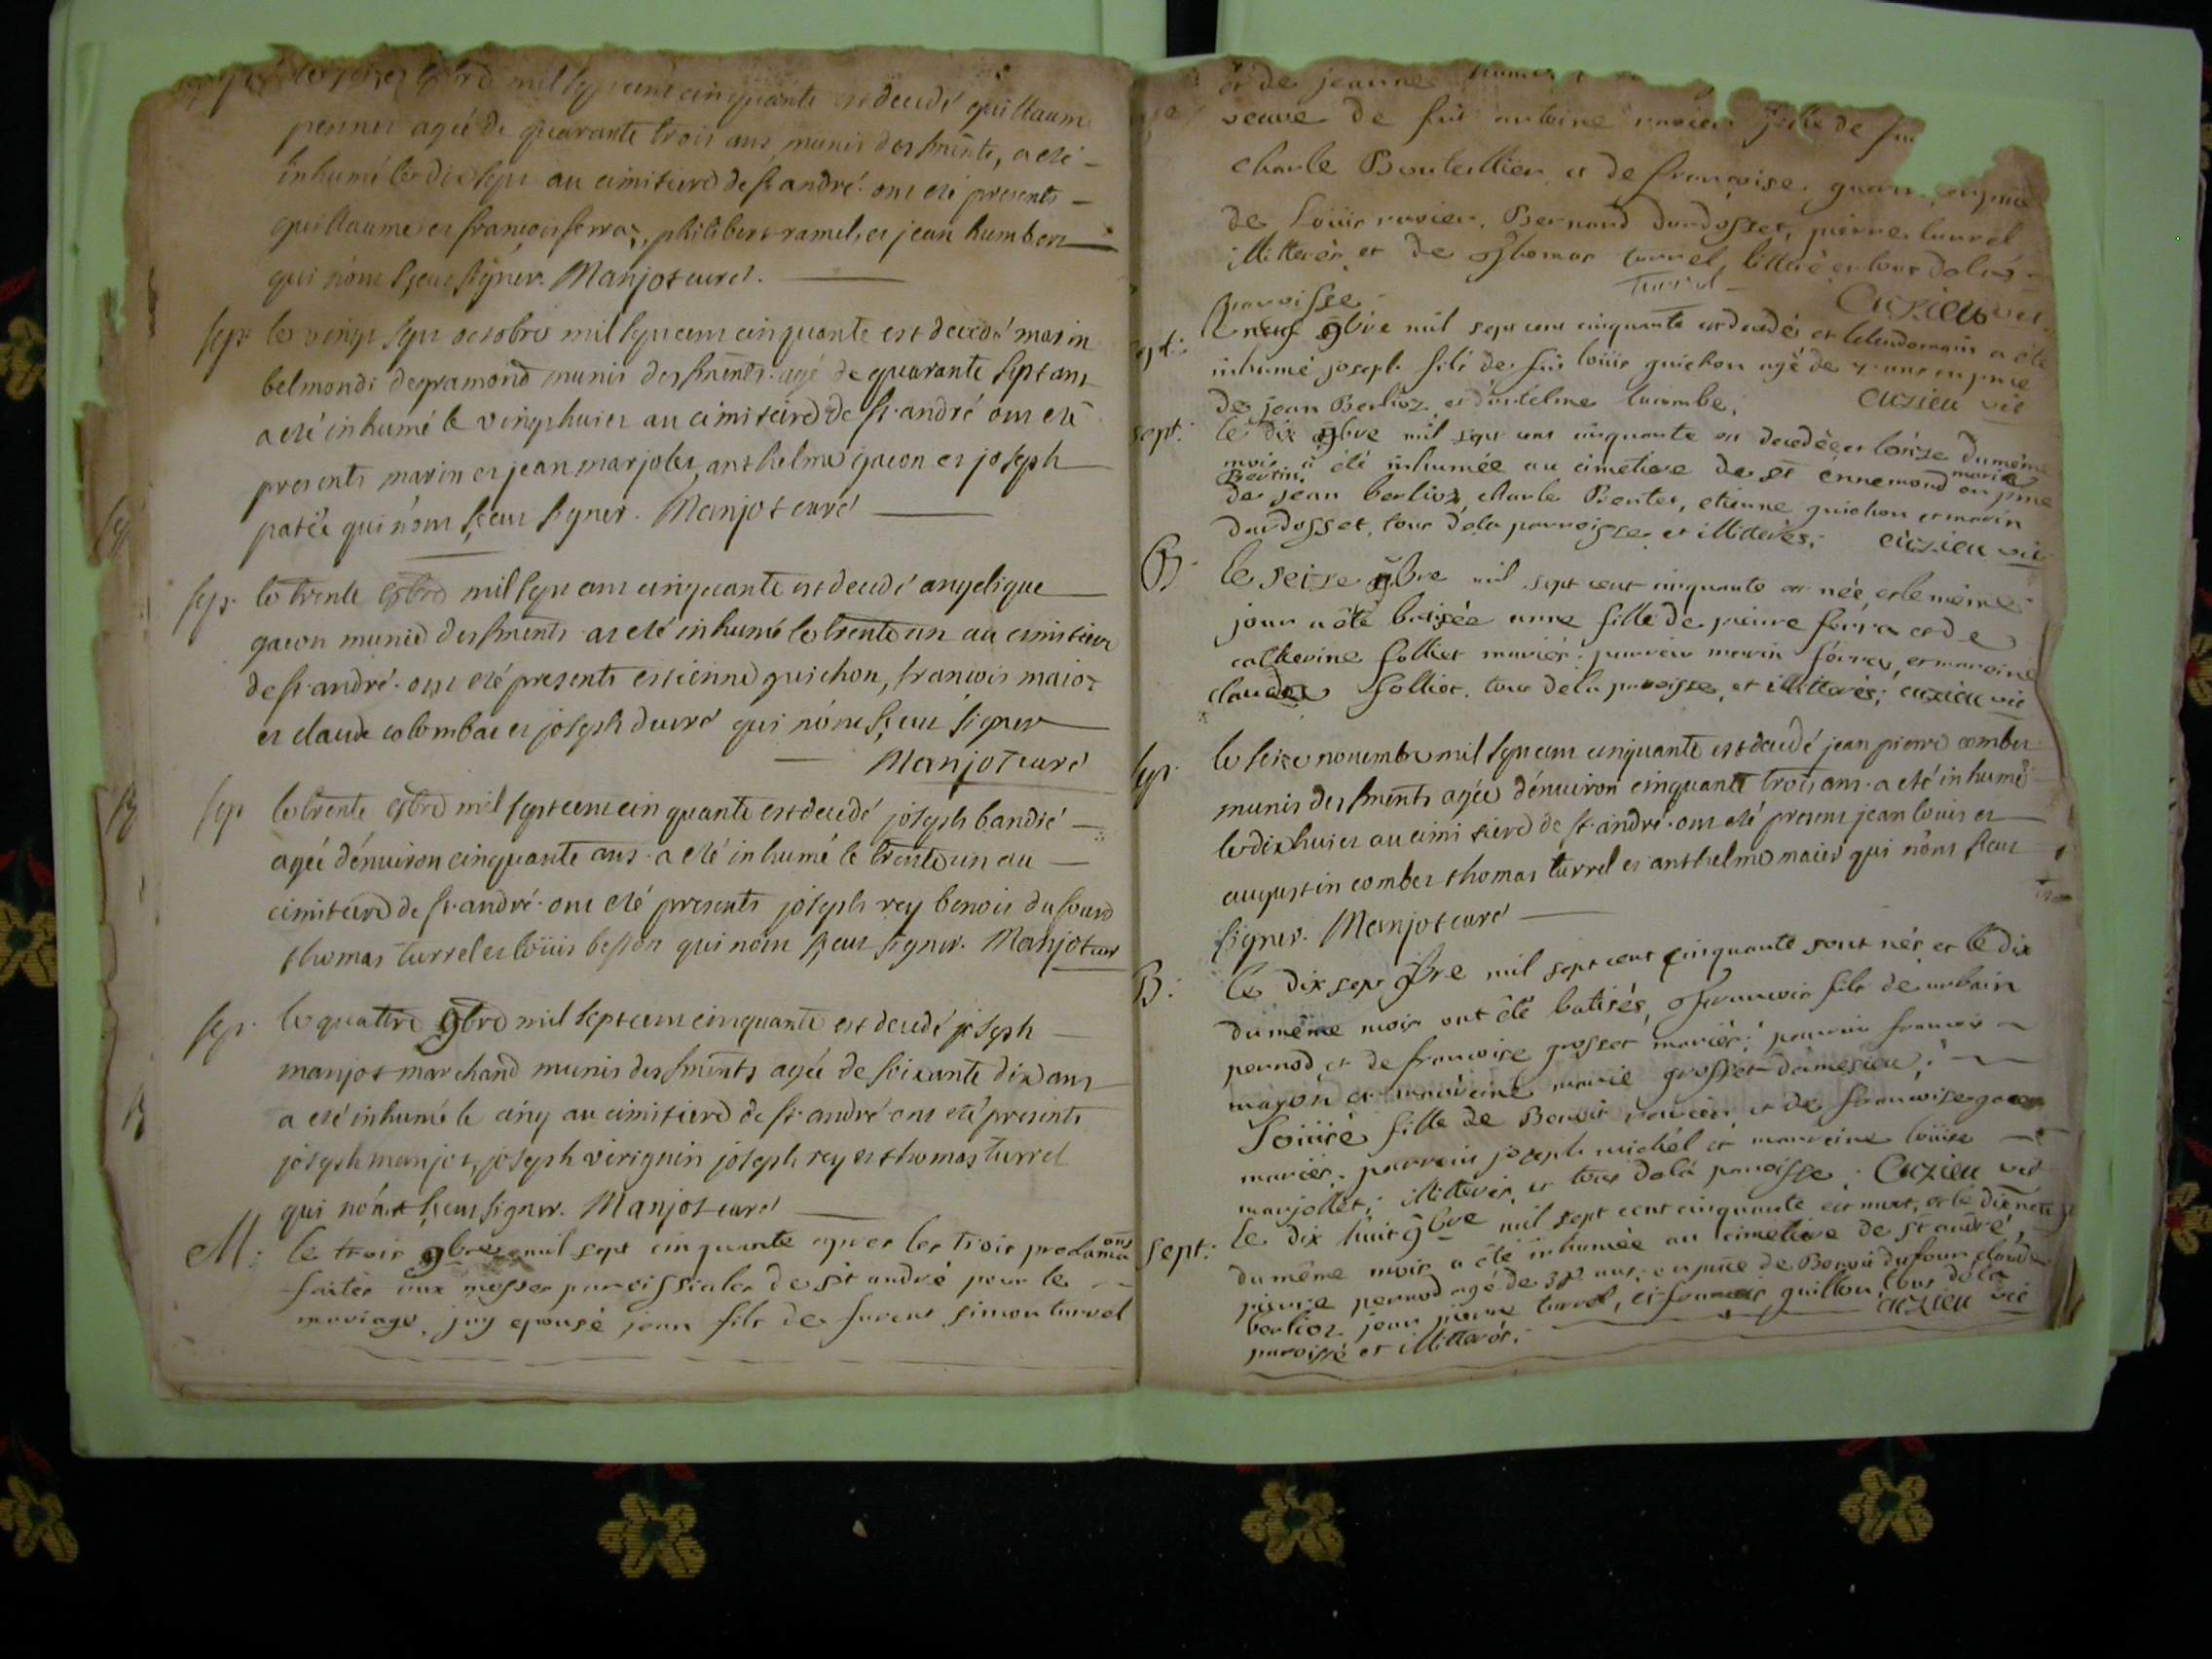 le seize 8bre mil sept cent cinquante est decedé guillaume
pernet agée de quarante trois ans munis des srments, a eté
inhumé le dix sept au cimitiere de st andré ont eté presents
guillaume et françois ferraz, philibert ramel, et jean humbert
qui n'ont sçeu signer. Manjot curé.
sep. le vingt sept octobre mil sept cent cinquante est decedé marin
belmondi degramond munis des srments agé de quarante sept ans
a eté inhumé le vingt huict au cimitiere de st andré ont eté
presents marin et jean marjolet anthelme gacon et joseph
qui n'ont sçeu signer. Manjot curé
sep. le trente 8bre mil sept cent cinquante est decedé angelique
gacon munie des srments a eté inhumé le trente un au cimitiere
de st andré ont eté presents estienne guichon, francois maior
et claude colombat et joseph duvré qui n'ont sçeu signer
Manjot curé
sep le trente 8bre mil sept cent cinquante est decedé joseph bandié
agée d'enuiron cinquante ans a eté inhumé le trente un au
cimitiere de st andré ont eté presents joseph rey benoit dufourd
thomas turrel et loüis besson qui n'ont sçeu signer. Manjot cur
sep. le quattre 9bre mil sept cent cinquante est decedé joseph
manjot marchand munis des srments agée de soixante dix ans
a eté inhumé le cinq au cimitiere de st andré ont eté presents
joseph manjot, joseph veriguin joseph rey et thomas turrel
qui n'ont sçeu signer. Manjot curé
M: le trois 9bre mil sept cinquante apres les trois proclamaons
faites aux messes paroissiales de st andré pour le
mariage, j'ay epousé jean fils de furent simon turrel
et de jeanne
veuve de fût antoine ravier fille de fut
charle Bouteillier et de françoise en pnce
de Loüis ravier, Bernard durdosset, pierre turrel
illiterés et de thomas turrel, litteré et tous dela
parroisse turrel Cuzieu vic.
sept: le neuf 9bre mil sept cent cinquante est decedé et lelendemain a été
inhumé joseph fils de fût loüis guichon agé de 7 ans en pnce
de jean Berlioz et d'antelme lacombe. Cuzieu vic
sept: le dix 9bre mil sept cent cinquante est decedée et le onze du même
mois a été inhumée au cimetiere de st ennemond marie
Bertin en pnce
de jean berlioz, charle Bertet, etienne guichon et marin
durdosset, tous dela parroisse et illiterés; cuzieu vic
B: le seize 9bre mil sept cent cinquante est née, et le même
jour a été batisée anne fille de pierre ferra et de
catherine folliet mariés; parrein marin ferra, et mareine
claudine folliet, tous dela paroisse, et illiterés; cuzieu vic
sep. le seize nouembre mil sept cent cinquante est decedé jean pierre combet
munis des srments agée d'enuiron cinquante trois ans a eté inhumé
le dix huict au cimitiere de st andré ont eté present jean louis et
augustin combet thomas turrel et anthelme maier qui n'ont sceu
signer. Manjot curé
B: le dix sept 9bre mil sept cent cinquante sont nés et le dix
du même mois ont été batisés, françois fils de urbain
pernod, et de françoise grosset mariés; parrein francois
mayon et mareine marie grosset damesieu;
Loüise fille de Benoit ravier et de francoise gacon
mariés; parrein joseph michel et marreine loüise
marjollet; illiterés et tous dela paroisse. Cuzieu vic
sept: le dix huit 9bre mil sept cent cinquante est mort, et le dix neuf
du même mois a été inhumée au cimetiere de st andré,
pierre pernod agé de 38 ans, en pnce de Benoit dufour, claude
berlioz, jean pierre turrel, et francois guillon, tous dela
paroisse et illiterés. cuzieu vic